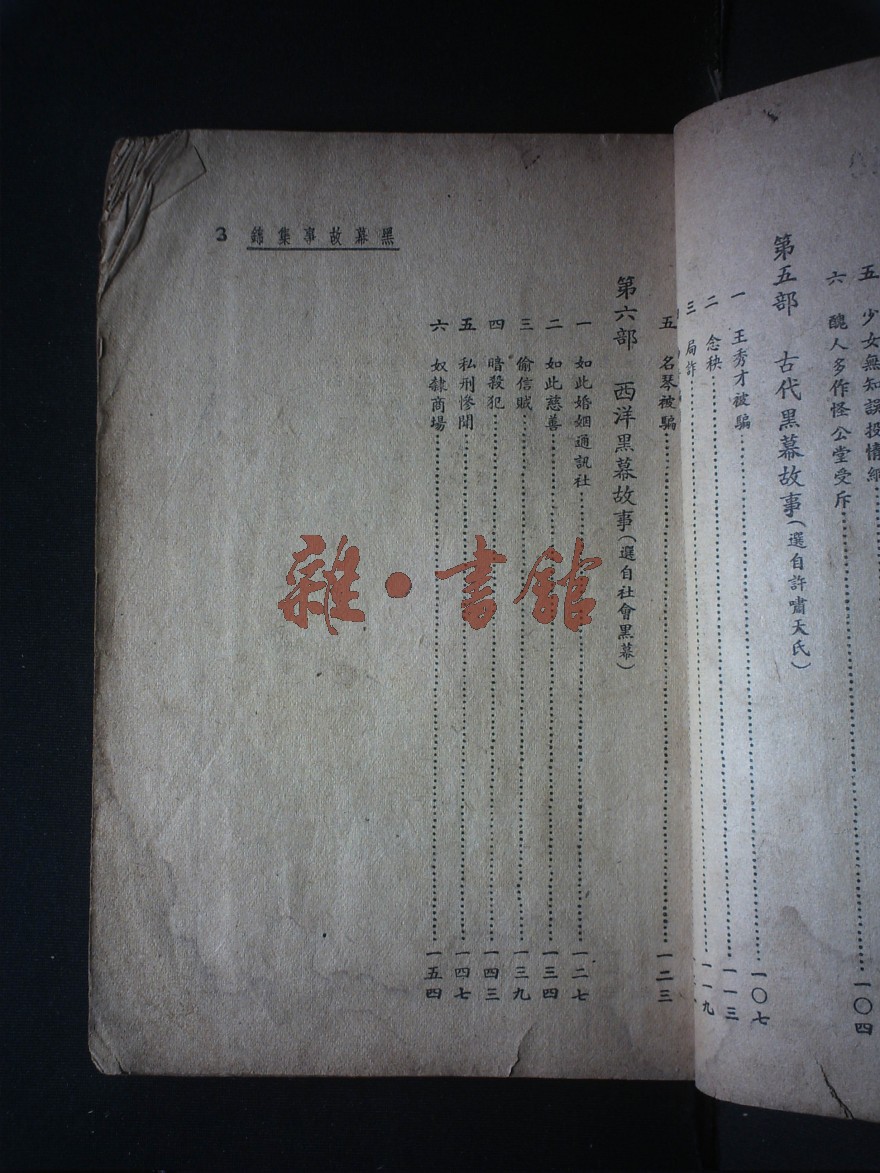 五 少女無知誤投情網
六 醜人多作怪公堂受斥 一〇四
第五部 古代黑幕故事(選自許嘯天氏)
一 王秀才被騙 一〇七
二 念秧 一一三
三 局詐 一一九
五 名琴被騙 一二三
第六部 西洋黑幕故事(選自社會黑幕)
一 如此婚姻通訊社 一二七
二 如此慈善 一三四
三 偷信賊 一三九
四 暗殺犯 一四三
五 私刑慘聞 一四七
六 奴隸商場 一五四
黑幕故事集錦 3
雜·書館